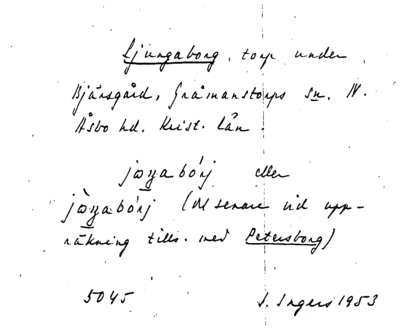 Ljungaborg, torp under
Bjärsgård, Gråmanstorps sn. N.
Åsbo hd. Krist. län.
jɷŋabórj eller
jɷ̀ŋabórj (det senare vid upp-
räkning tills. med Petersborg)
5045 I. Ingers 1953